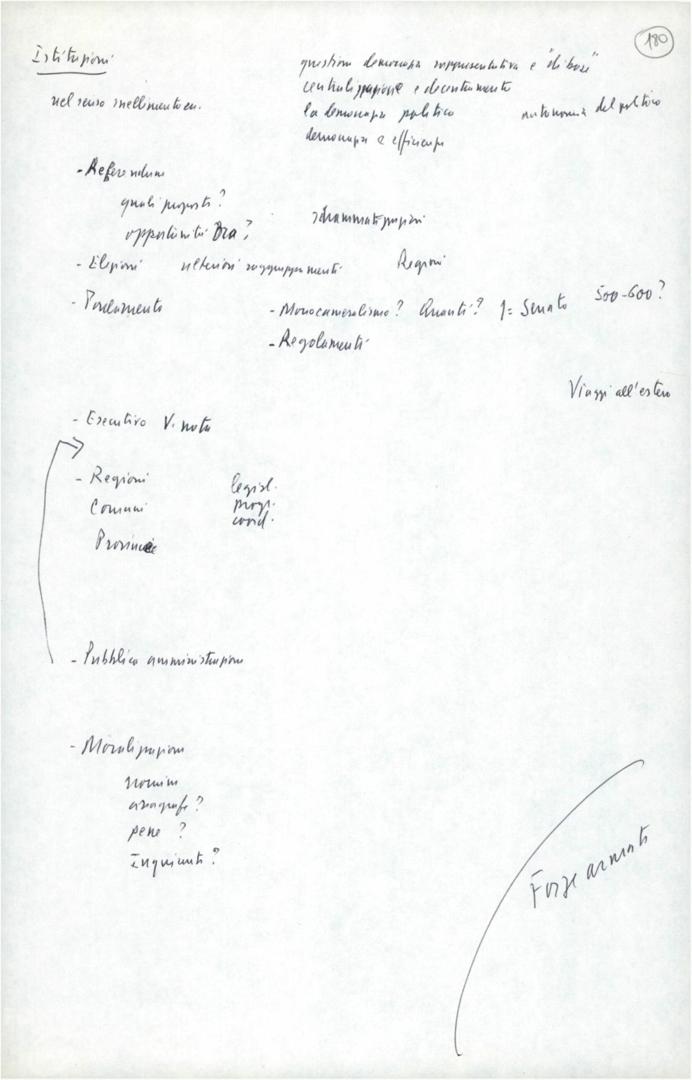 180
Istituzioni
question democrazia rappresentativa e "di base"
nel senso snellimento ecc.
centralizzazione e decentramento
la democrazia politica autonomia del politico
democrazia e efficienza
- Referendum
quali proposte?
opportunità Ora? sdrammatizzazioni
- Elezioni ulteriori raggruppamenti Regioni
- Parlamento - Monocameralismo? Quanti? 1= Senato 500-600?
- Regolamenti
Viaggi all'estero
- Esecutivo V. nota
- Regioni legisl.
Comuni progr.
coord.
Provincie
- Pubblica amministrazione
- Moralizzazione
nomine
anagrafe?
pene?
Inquirente?
Forze armate